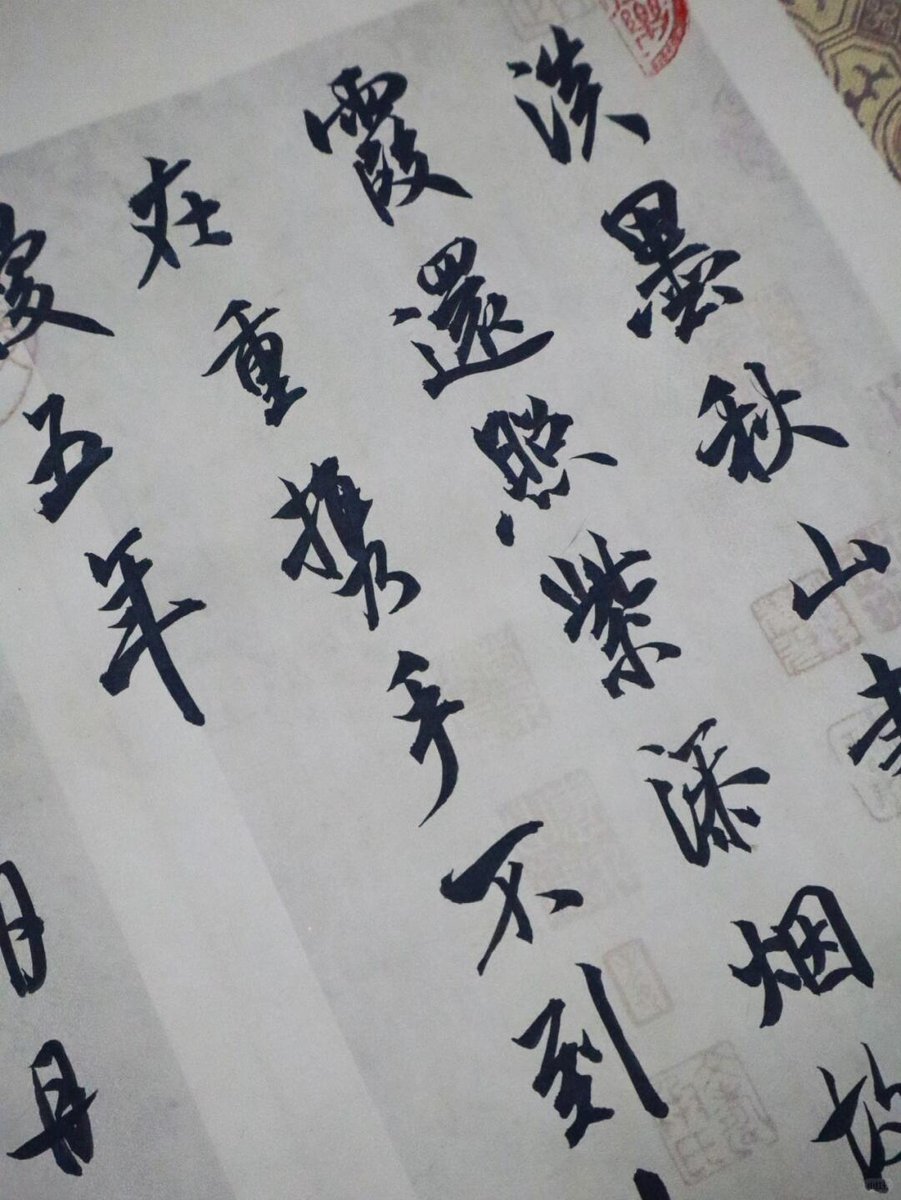 淡墨秋山
霞還照紫添烟故
在重携手不到
五年